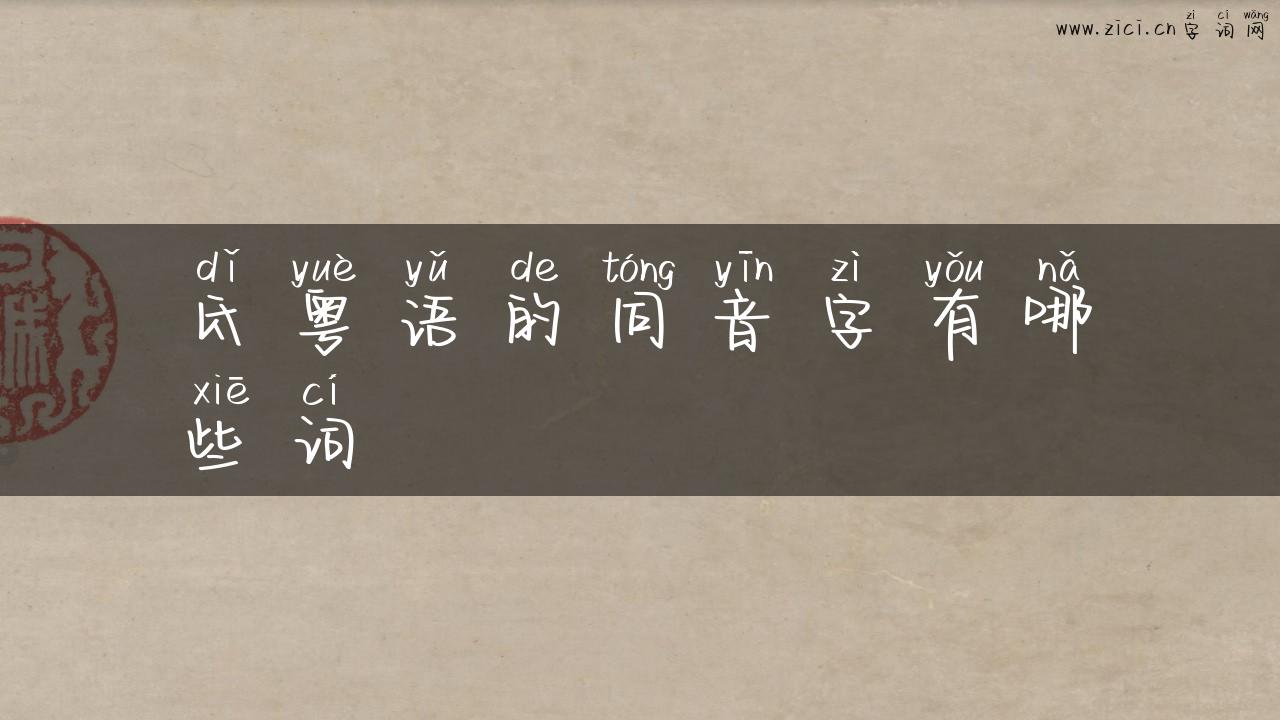 zì cí wǎng
www.zici.cn 字词网
dǐ yuè yǔ de tóng yīn zì yǒu nǎ
氐粤语的同音字有哪
xiē cí
些词